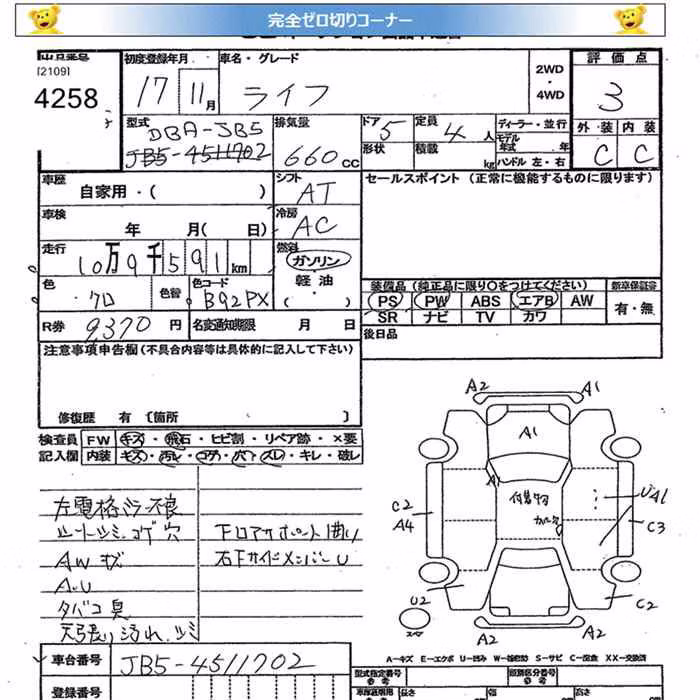 完全ゼロ切りコーナー
[2109]
4258
初度登録年月
17 11月
車名・グレード
ライフ
2WD
・
4WD
評価点
3
外装 内装
C C
型式
DBA-JB5
JB5-4511702
排気量
660cc
ドア 5
形状
定員 4人
積載 kg
ディーラー・並行
モデル年式 年
ハンドル 左・右
車歴
自家用・( )
シフト
AT
車検
年 月( 日)
冷房
AC
走行
10万9千591km
燃料
ガソリン
軽油
( )
色
クロ
色替
色コード
B92PX
R券 9,370円
名変通知期限 月 日
セールスポイント(正常に機能するものに限ります)
装備品(純正品に限り○をつけてください)
PS PW ABS エアB AW
SR ナビ TV カワ
新車保証書
有・無
後日品
注意事項申告欄(不具合内容等は具体的に記入して下さい)
修復歴 有 〔箇所 〕
検査員
記入欄
FW キズ・飛石・ヒビ割・リペア跡・×要
内装 キズ・汚レ・コゲ・穴・スレ・キレ・破レ
左電格ミラー不良
シートツミ コゲ穴
AWキズ
A.U
タバコ臭
天張り汚れ、ツミ
下回アサポート曲り
右Fサイドメンバー U
A2 A1
A1
A1
付着物
UA1
C2
A4
C3
U2
C2
スペア
A2 A2
A-キズ E-エクボ U-凹み W-補修跡 S-サビ C-腐食 XX-交換済
車台番号 JB5-4511702
登録番号
型式指定番号
類別区分番号
長さ
幅
高さ